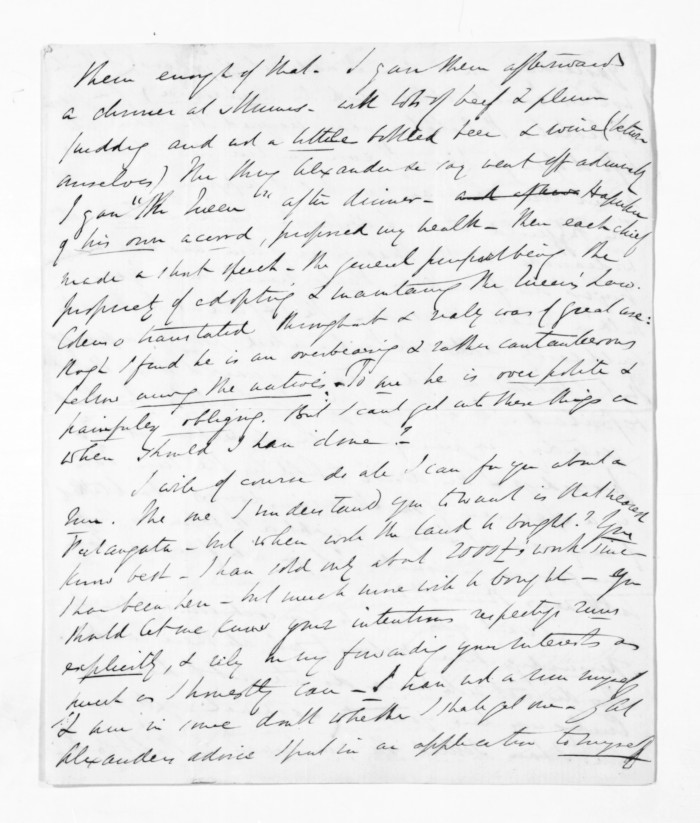 them enough of that - I gave them afterwards
a dinner at Munns - with lots of beef & plum
pudding and not a little bottled beer & wine (between
ourselves) The thing Alexander &c say went off admirably
I gave "The Queen" after dinner - and after Hapuku
of his own accord, proposed my health - then each chief
made a short speech - the general purport being the
propriety of adopting & maintaining the Queen's Law.
Colenso translated throughout & really was of great use:
though I find he is an overbearing & rather cantankerous
fellow among the natives. To me he is over polite &
painfully obliging. But I can't get into these things or
when should I have done?-
I will of course do all I can for you about a
run. The one I understand you to want is that nearest
Patangata - but when will the land be bought? You
know best - I have sold only about 2000£s worth since
I have been here - but much more will be bought - You
should let me know your intentions respecting runs
explicitly, & rely on my forwarding your interests as
much as I honestly can - I have not a run myself
& am in some doubt whether I shall get one - At
Alexanders advice I put in an application to myself